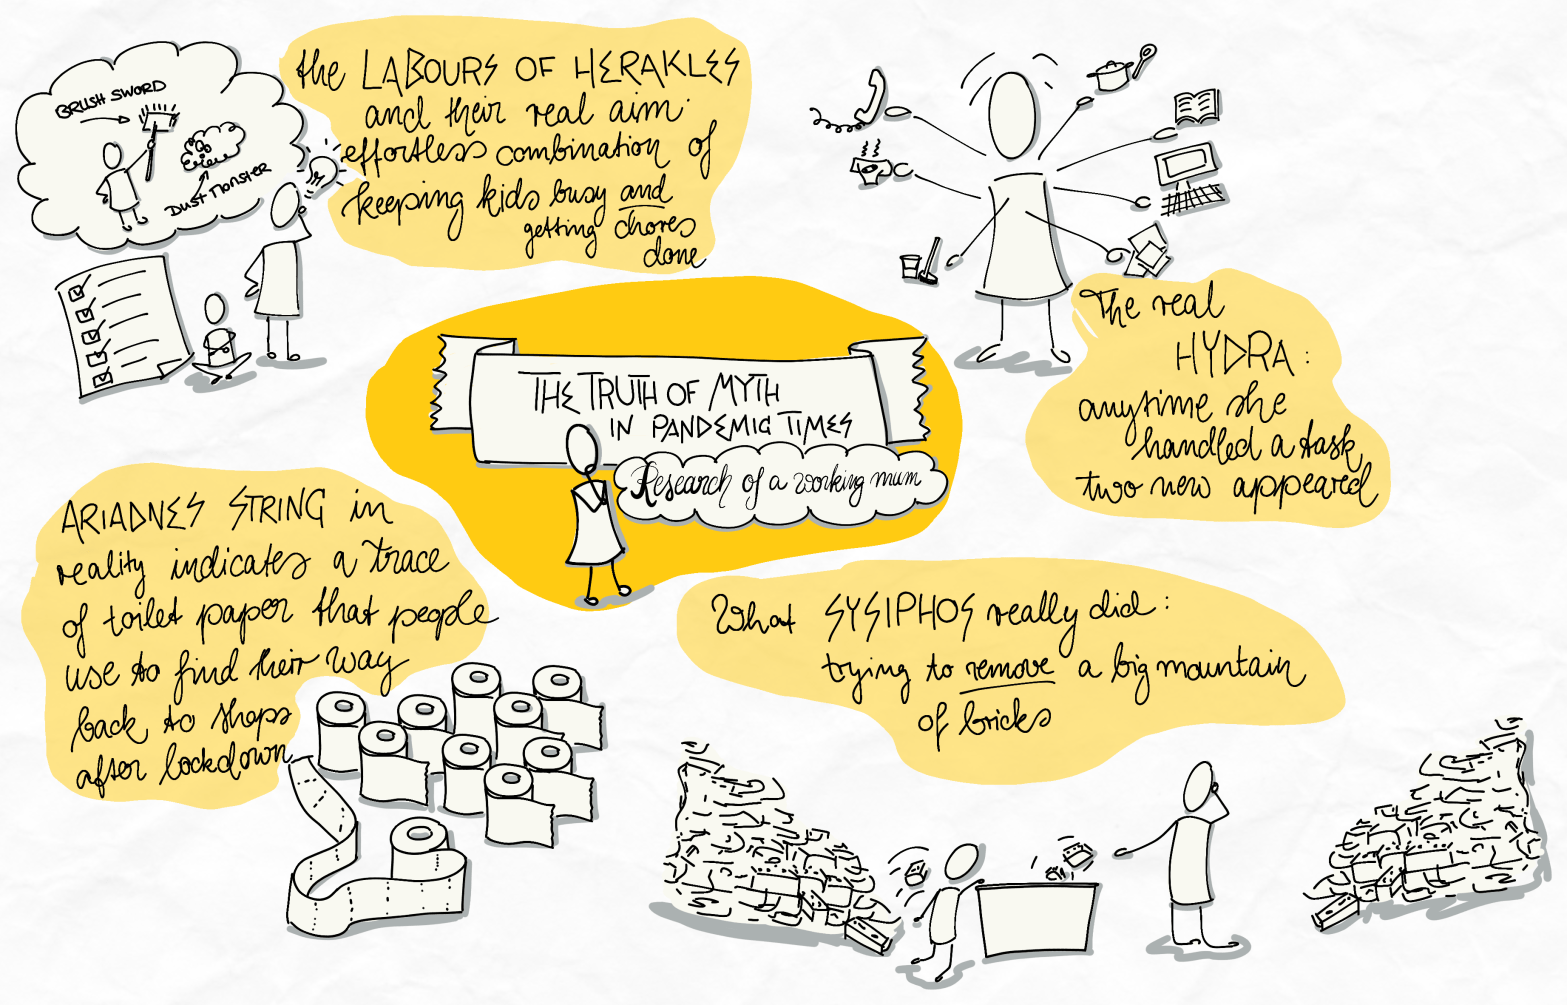 BRUSH SWORD
DUST MONSTER
the LABOURS OF HERAKLES
and their real aim:
effortless combination of
keeping kids busy and
getting chores
done
THE TRUTH OF MYTH
IN PANDEMIC TIMES
Research of a working mum
The real
HYDRA:
anytime she
handled a task
two new appeared
ARIADNES STRING in
reality indicates a trace
of toilet paper that people
use to find their way
back to shops
after lockdown
What SYSIPHOS really did:
trying to remove a big mountain
of bricks